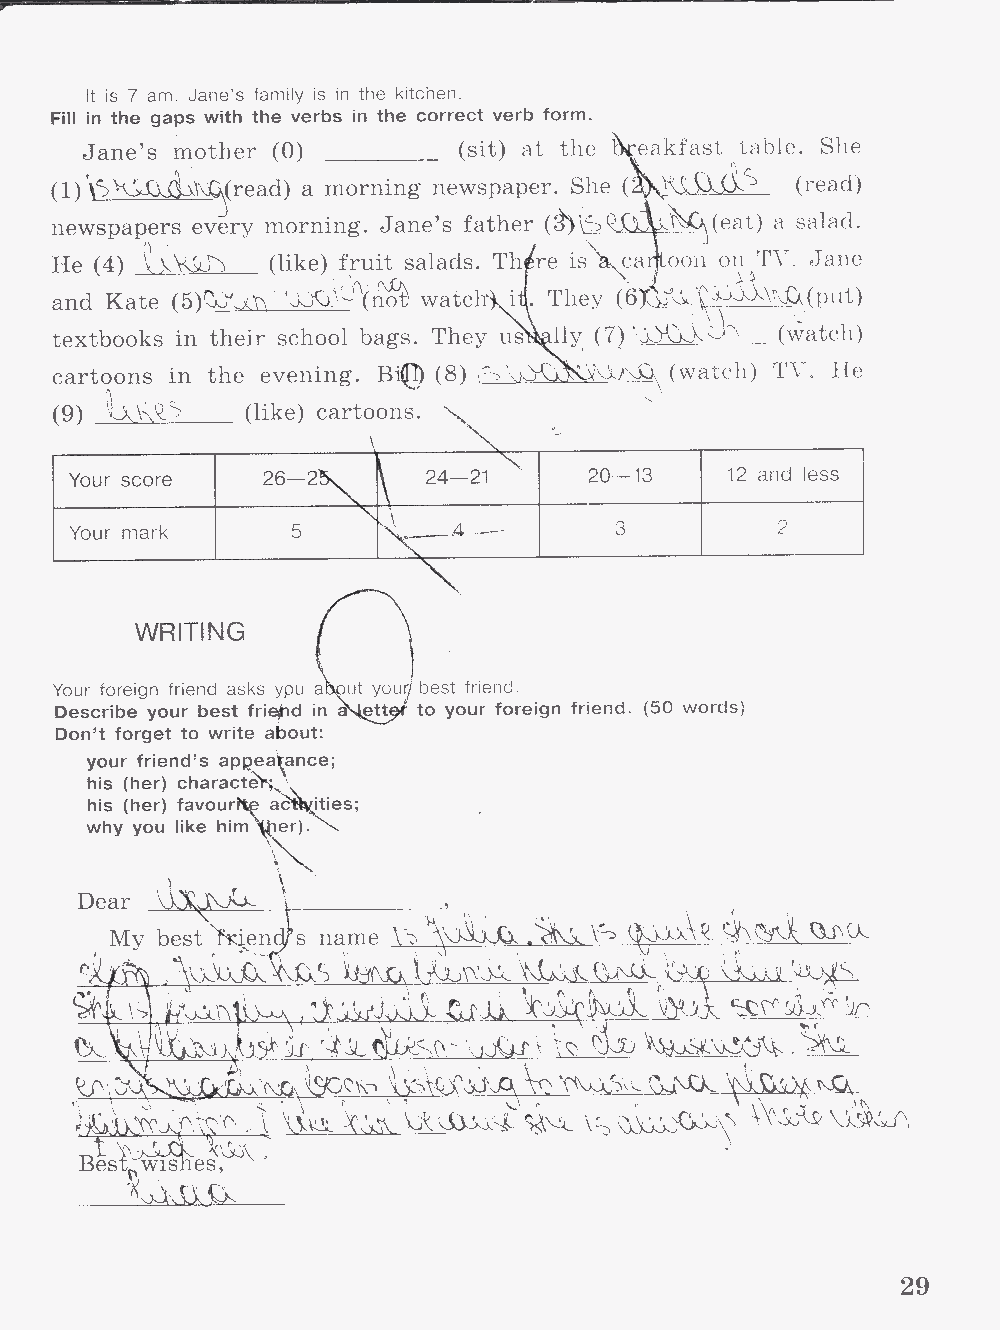 It is 7 am. Jane's family is in the kitchen.
Fill in the gaps with the verbs in the correct verb form.
Jane's mother (0) __________ (sit) at the breakfast table. She
(1) is reading (read) a morning newspaper. She (2) reads (read)
newspapers every morning. Jane's father (3) is eating (eat) a salad.
He (4) likes (like) fruit salads. There is a cartoon on TV. Jane
and Kate (5) (not watch) it. They (6) are putting (put)
textbooks in their school bags. They usually (7) watch (watch)
cartoons in the evening. Bill (8) is watching (watch) TV. He
(9) likes (like) cartoons.
Your score 26—25 24—21 20—13 12 and less
Your mark 5 4 3 2
WRITING
Your foreign friend asks you about your best friend.
Describe your best friend in a letter to your foreign friend. (50 words)
Don't forget to write about:
your friend's appearance;
his (her) character;
his (her) favourite activities;
why you like him (her).
Dear
My best friend's name is Julia. She is quite short and
slim. Julia has long hair and big blue eyes
She is friendly, cheerful and helpful but sometimes
a she doesn't want to do housework. She
enjoys reading books listening to music and playing
badminton. I like her because she is always there when
I need her.
Best wishes,
29